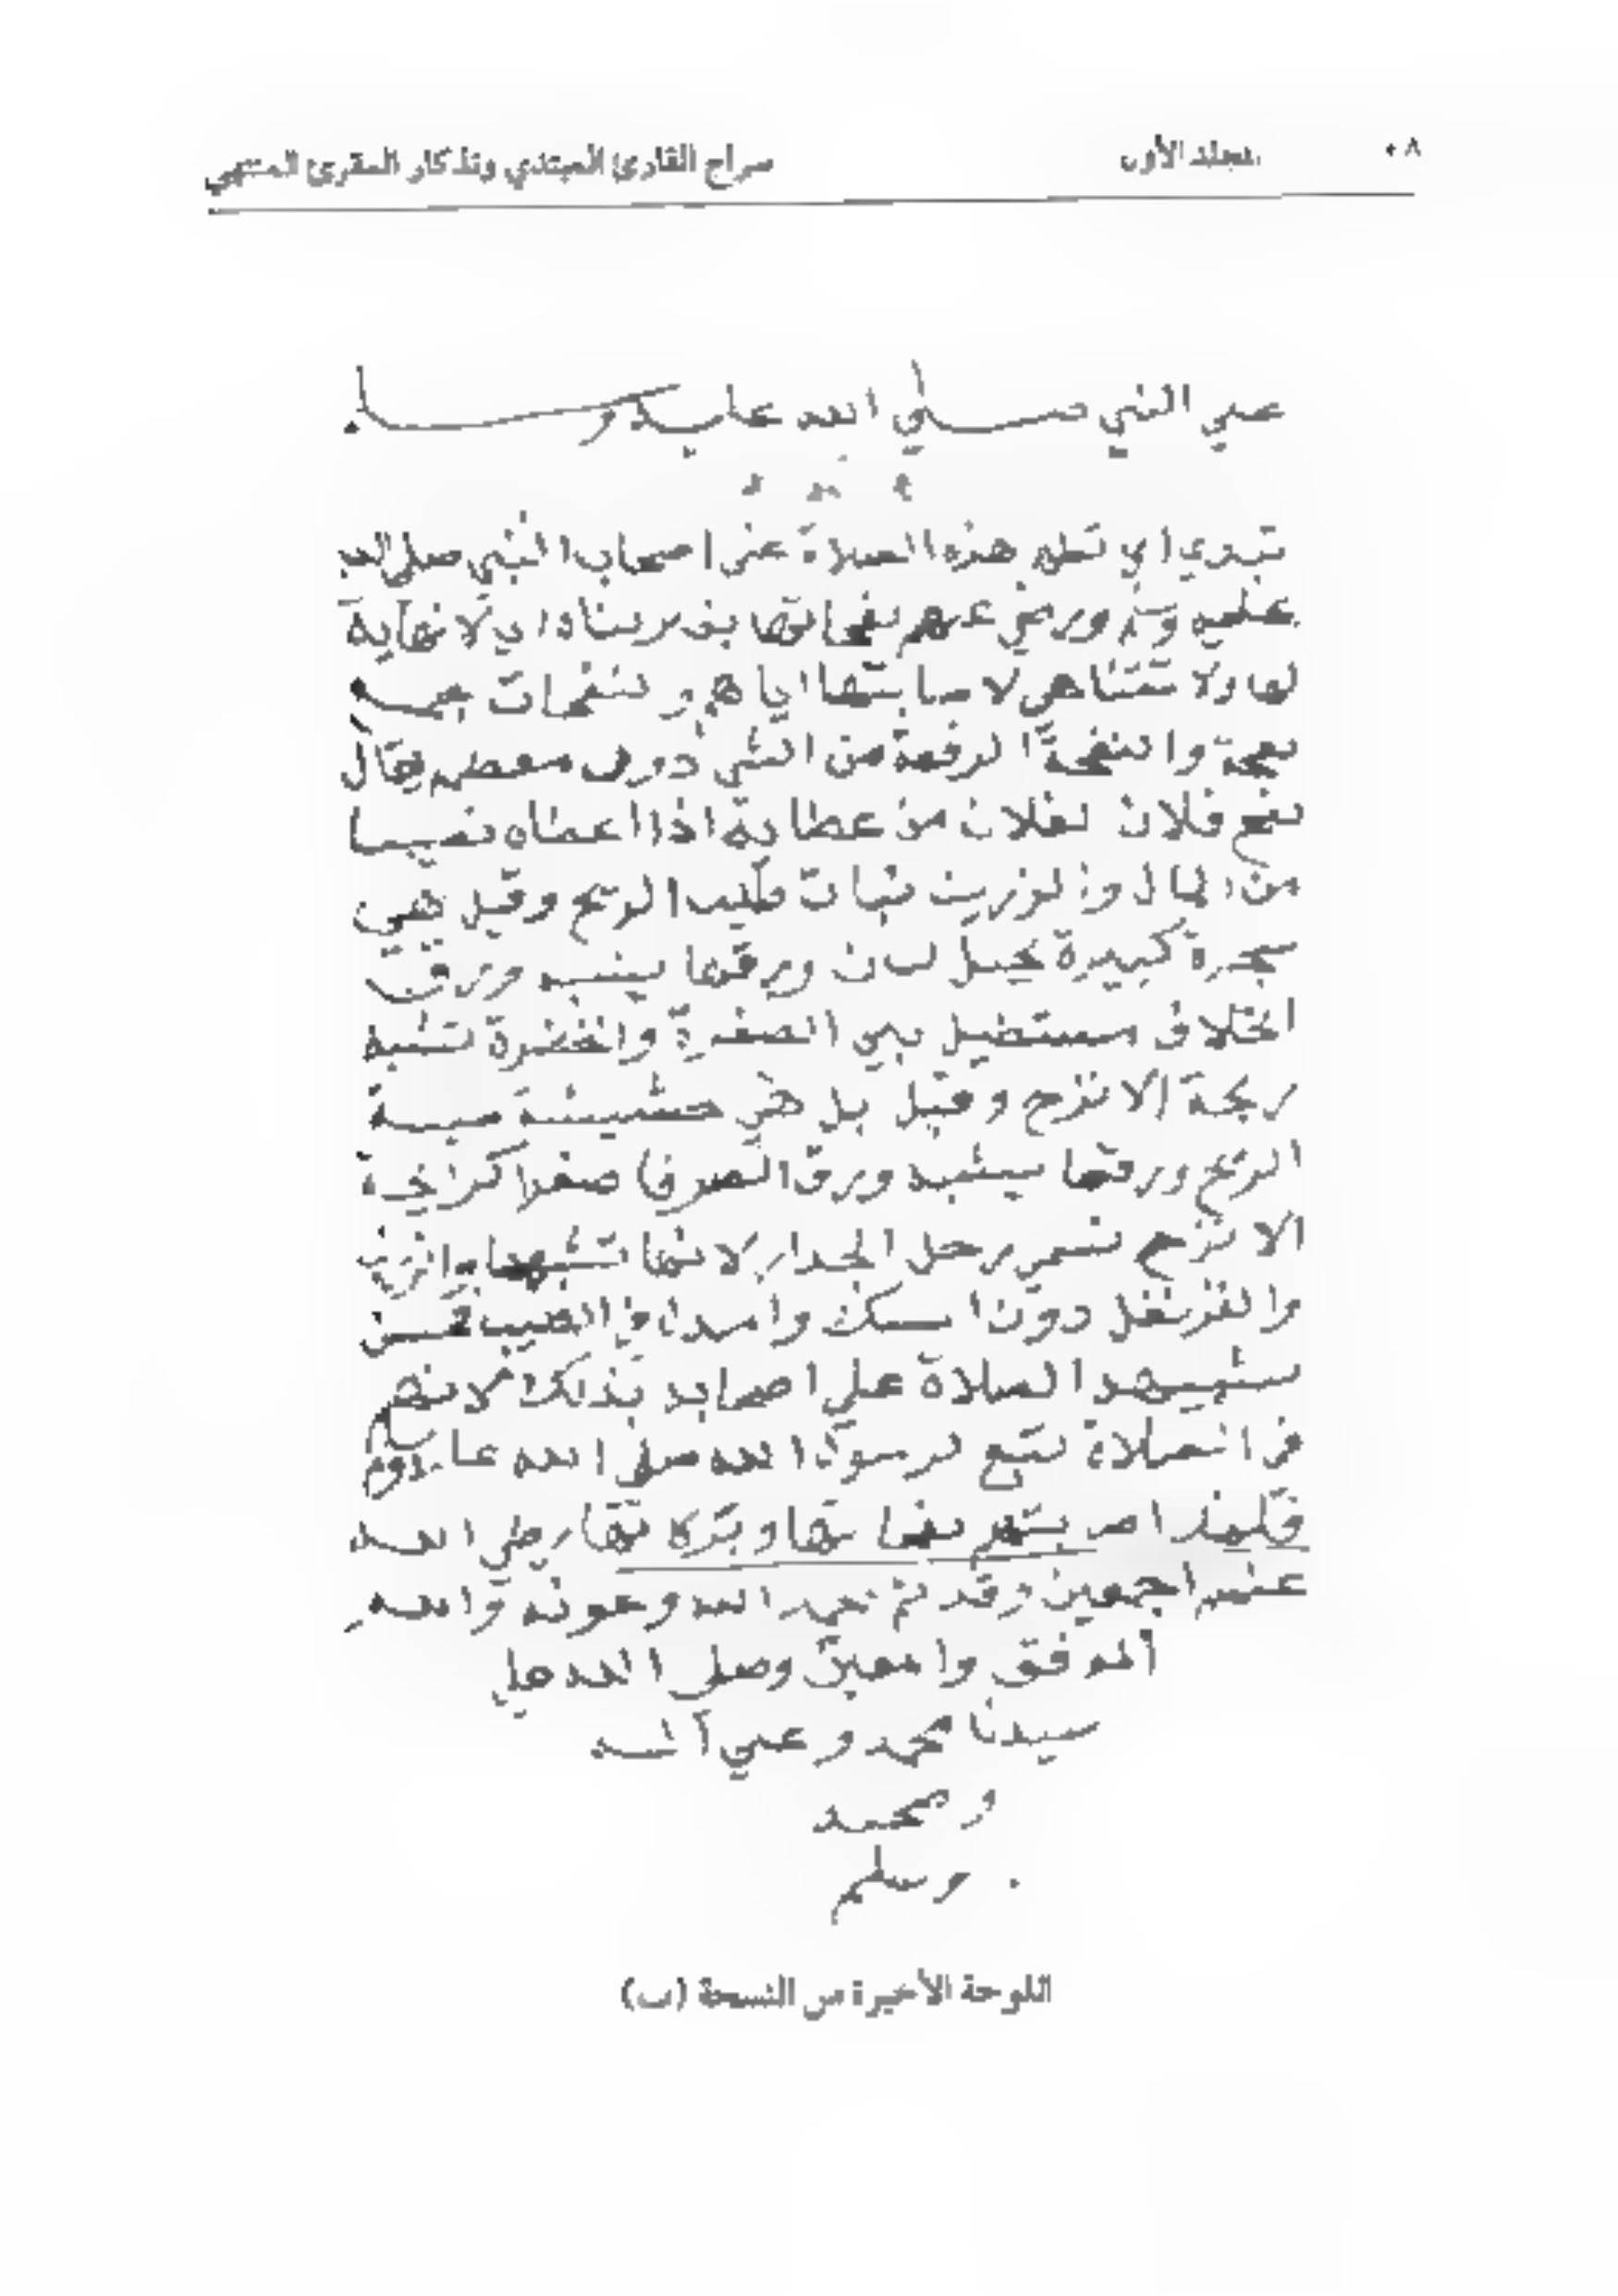 ٨٠ المجلد الأول سراج القارئ المبتدي وتذكار المقرئ المنتهي
علي النبي صلي الله عليه وسلم
تبدي اي تظهر هذه الصلاة على اصحاب النبي صلى الله
عليه وسلم ورضي عنهم نفحاتها بغير تناه اي لا نهاية
لها ولا تتناهى لاصابتها اياهم ونفحات جمع
نفحة والنفحة الدفعة من الشي دون معظمه يقال
نفح فلان لفلان من عطاية اذا اعطاه نصيبا
من المال والزرنب نبات طيب الريح وقيل هي
شجرة كبيرة بجبل لبنان ورقها يشبه ورق
الخلاف مستطيل بين الصفرة والخضرة تشبه
ريحة الاترج وقيل بل هي حشيشة طيبة
الريح ورقها يشبه ورق الطرفا صفرا كرايحة
الاترج تسمى رجل الجراد لانها تشبهها والزرنب
والقرنفل دون المسك وا في الطيب فحسن
تشبيه الصلاة على اصحابه بذلك لانهم
في الصلاة تبع لرسول الله صلى الله عليه وسلم
فلهذا اصابتهم نفحاتها وبركاتها رضي الله
عنهم اجمعين وقد تم بحمد الله وعونه والله
الموفق والمعين وصلى الله علي
سيدنا محمد وعلي آله
وصحبه
وسلم
اللوحة الأخيرة من النسخة (ب)